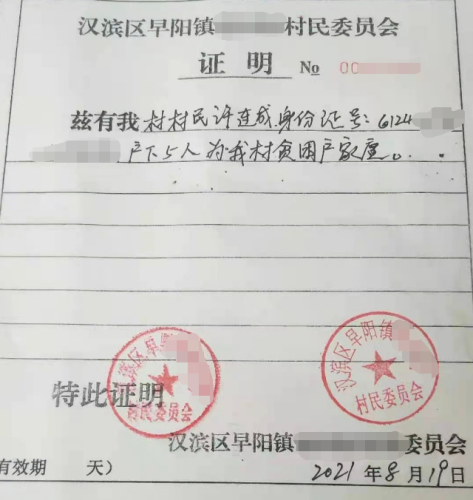 汉滨区早阳镇 村民委员会
证 明 № 00
兹有我村村民许连成,身份证号:6124
户下5人为我村贫困户家庭。
特此证明
汉滨区早阳镇
村民委员会
汉滨区早阳镇
村民委员会
汉滨区早阳镇 委员会
有效期 天)
2021年8月19日